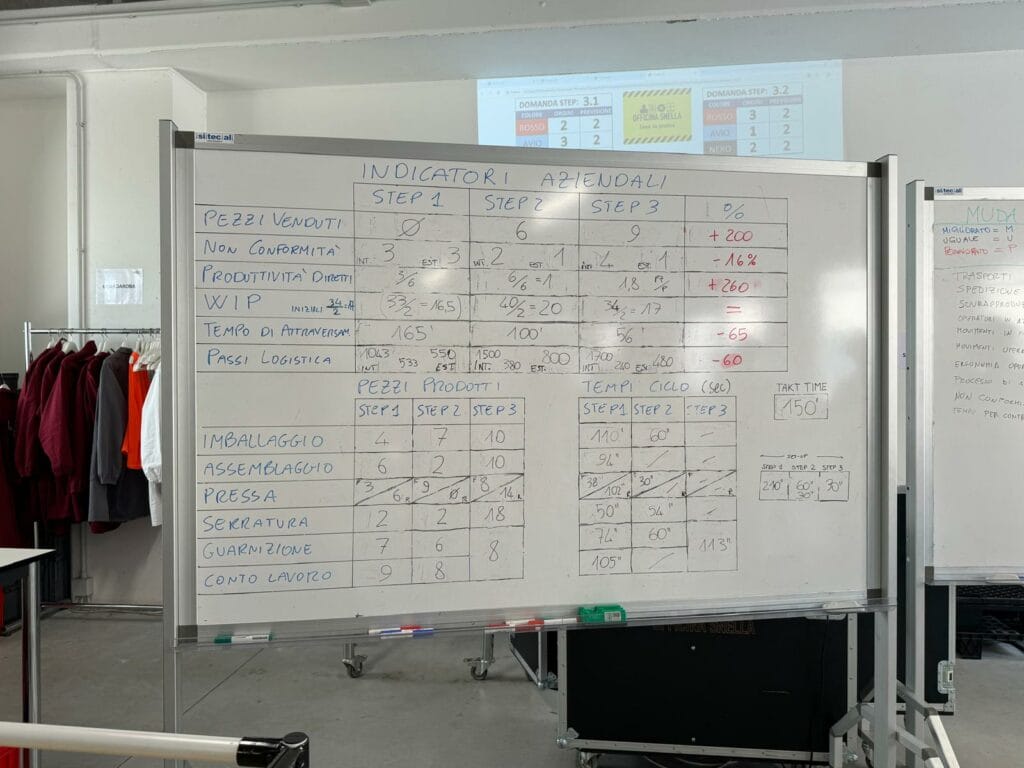 DOMANDA STEP: 3.1
COLORE ORDINI PREVISIONE
ROSSO 2 2
AVIO 3 2
OFFICINA SNELLA
DOMANDA STEP: 3.2
COLORE ORDINI PREVISIONE
ROSSO 3 2
AVIO 1 2
NERO 2 2
sitec al
INDICATORI AZIENDALI
STEP 1 STEP 2 STEP 3 %
PEZZI VENDUTI Ø 6 9 +200
NON CONFORMITA' INT: 3 EST: 3 INT: 2 EST: 1 INT: 4 EST: 1 -16%
PRODUTTIVITA' DIRETTI 3/6 6/6 = 1 1,8 +260
WIP INIZIALI 34/2 = 33/2 = 16,5 40/2 = 20 34/2 = 17 =
TEMPO DI ATTRAVERSAM 165' 100' 56' -65
PASSI LOGISTICA 1043 INT 533 550 EST 1500 INT: 380 EST: 800 1700 INT: 240 EST: 480 -60
PEZZI PRODOTTI
STEP 1 STEP 2 STEP 3
IMBALLAGGIO 4 7 10
ASSEMBLAGGIO 6 2 10
PRESSA F 3 6 R F 9 Ø R F 8 14 R
SERRATURA 2 2 18
GUARNIZIONE 7 6 8
CONTO LAVORO 9 8
TEMPI CICLO (SEC)
STEP 1 STEP 2 STEP 3
110" 60" -
94" / -
38" 102" R 30" - - R
50" 54" -
74" 60" 113"
105" /
TAKT TIME
150'
SET-UP
STEP 1 STEP 2 STEP 3
210" 60" 30" 30"
sitec al
MUDA
MIGLIORATO = M
UGUALE = U
PEGGIORATO = P
TRASPORTI
SPEDIZIONE
SOVRAPPRODU
OPERATORI IN A
MOVIMENTI IN
MOVIMENTI OPER
ERGONOMIA OPE
PROCESSO DI
NON CONFORMI
TEMPO PER CONT